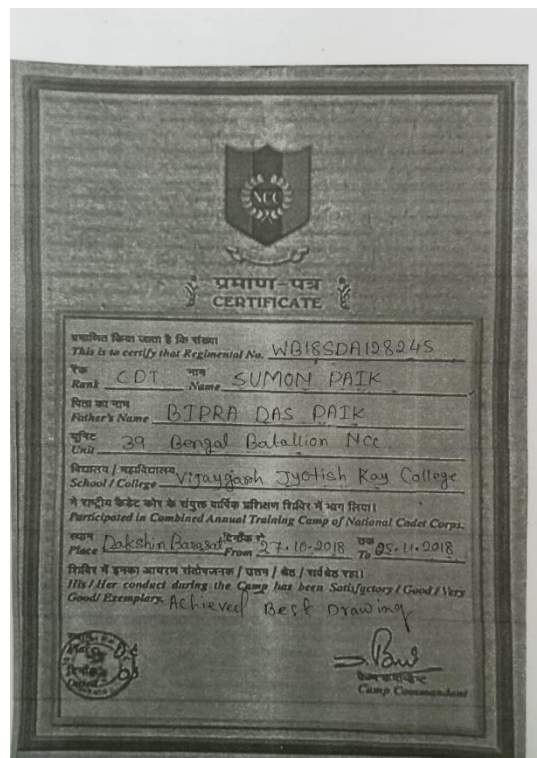 NCC
प्रमाण-पत्र
CERTIFICATE
प्रमाणित किया जाता है कि संख्या
This is to certify that Regimental No. WB18SDA128245
रैंक नाम
Rank CDT Name SUMON PAIK
पिता का नाम
Father's Name BIPRA DAS PAIK
यूनिट
Unit 39 Bengal Batallion Ncc
विद्यालय / महाविद्यालय
School / College Vijaygarh Jyotish Ray College
ने राष्ट्रीय कैडेट कोर के संयुक्त वार्षिक प्रशिक्षण शिविर में भाग लिया।
Participated in Combined Annual Training Camp of National Cadet Corps.
स्थान दिनाँक से तक
Place Dakshin Barasat From 27.10.2018 To 05.11.2018
शिविर में इनका आचरण संतोषजनक / उत्तम / श्रेष्ठ / सर्वश्रेष्ठ रहा।
His / Her conduct during the Camp has been Satisfactory / Good / Very
Good/ Exemplary. Achieved Best Drawing
कैम्प कमांडेन्ट
Camp Commandant